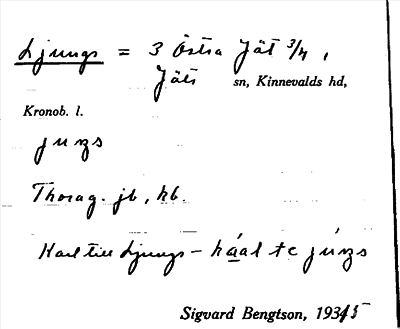 Ljungs = 3 Östra Jät 3/4,
Jäts sn, Kinnevalds hd,
Kronob. l.
juŋs
Thorag. jb, kb.
Karl till Ljungs –
Sigvard Bengtson, 193